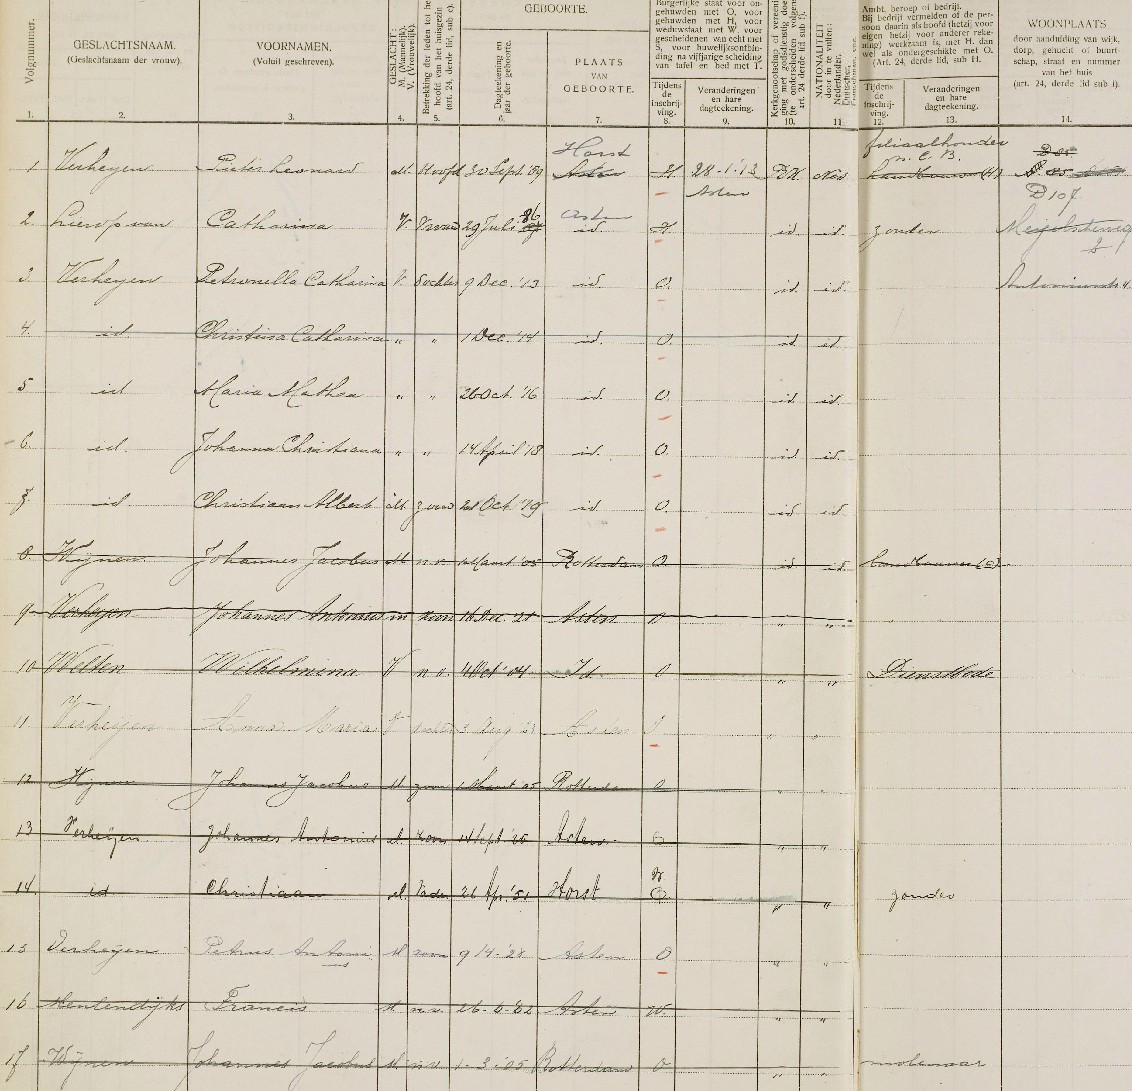 Volgnummer.
GESLACHTSNAAM.
(Geslachtsnaam der vrouw).
VOORNAMEN.
(Voluit geschreven).
GESLACHT:
M. (Mannelijk).
V. (Vrouwelijk).
Betrekking der leden tot het
hoofd van het huisgezin
(art. 24, derde lid, sub c).
GEBOORTE.
Dagteekening en
jaar der geboorte.
PLAATS
VAN
GEBOORTE.
Burgerlijke staat voor on-
gehuwden met O, voor
gehuwden met H, voor
weduwstaat met W, voor
gescheidenen van echt met
S, voor huwelijksontbin-
ding na vijfjarige scheiding
van tafel en bed met T.
Tijdens
de
inschrij-
ving.
Veranderingen
en hare
dagteekening.
NATIONALITEIT
Ambt, beroep of bedrijf.
Bij bedrijf vermelden of de per-
soon daarin als hoofd (hetzij voor
eigen hetzij voor anderer reke-
ning) werkzaam is, met H. dan
wel als ondergeschikte met O.
(Art. 24, derde lid, sub H.
Tijdens
de
inschrij-
ving.
Veranderingen
en hare
dagteekening.
WOONPLAATS
door aanduiding van wijk,
dorp, gehucht of buurt-
schap, straat en nummer
van het huis
(art. 24, derde lid sub i).
1. 2. 3. 4. 5. 6. 7. 8. 9. 10. 11. 12. 13. 14.
filiaalhouder
Horst
1 Verheyen Pieter Leonard M. Hoofd 30 Sept '89 Asten H. 28-1-'13 RK Ned landbouwer (H)
Asten
D 107
86
Asten
2. Lierop van Catharina V. Vrouw 29 Juli id. H id. id. zonder Meijelscheweg
3. Verheyen Petronella Catharina V. dochter 9 Dec. '13 id. O. id. id.
4. id. Christina Catharina " " 1 Dec. '14 id. O id id
5 id Maria Mathea " " 26 Oct. '16 id. O. id. id.
6. id. Johanna Christiana " " 14 April '18 id. O. id. id.
7. id Christiaan Albert M. zoon 21 Oct '19 id O. id id
8. Wijnen Johannes Jacobus M n.v. 1 Maart '05 Rotterdam O id id landbouwer (O)
9 Verheyen Johannes Antonius m zoon 16 Dec. '21 Asten O " "
10 Welten Wilhelmina V n.v. 4 Oct '04 Id O " " Dienstbode
11. Verheyen Anna Maria V dochter 3 Aug '23 Asten O " "
12 Wijnen Johannes Jacobus M zoon 1 Maart 05 Rotterdam O
13 Verheijen Johannes Antonius M. zoon 14 Sept '25 Asten O " "
W
14. id Christiaan M. Vader 26 Apr. '51 Horst O " " zonder
15 Verheijen Petrus Antoni M zoon 9 14 - '28 Asten O " "
16 Francis M n.v. 26-6-'62 Asten W. " "
17 Wijnen Johannes Jacobus M. n.v. 1-3-'05 Rotterdam O " " molenaar